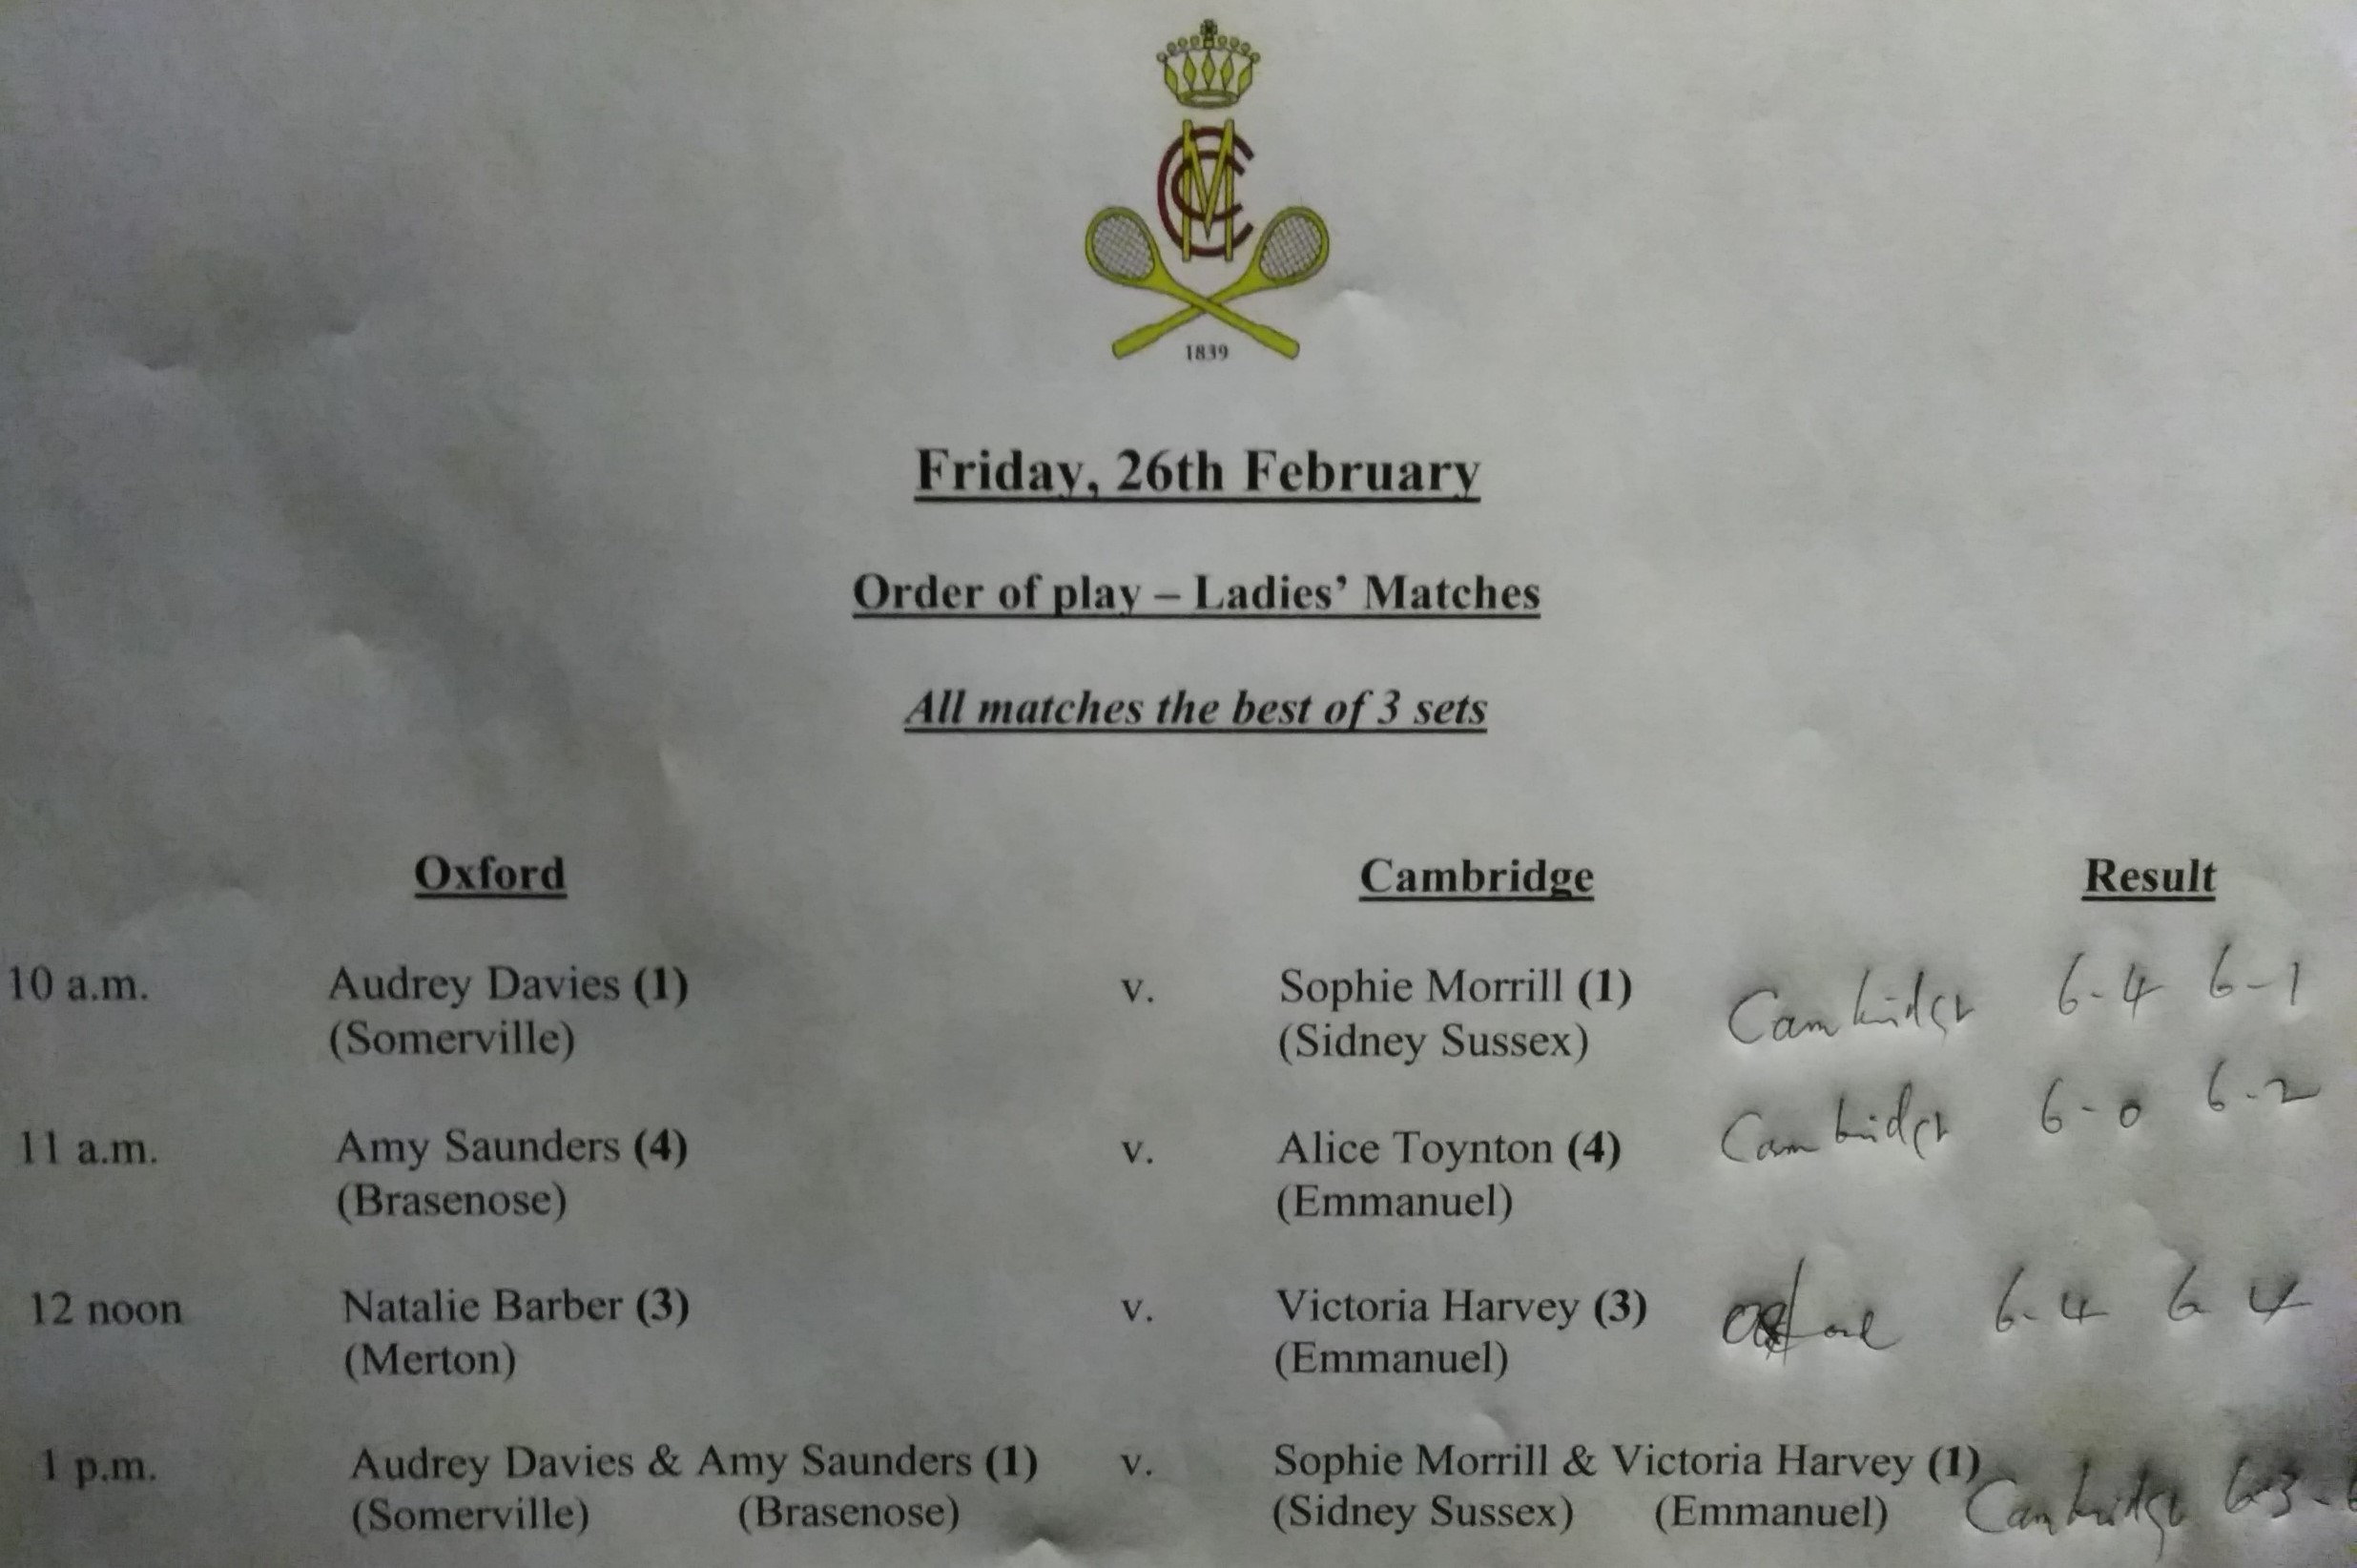 MCC
1839
Friday, 26th February
Order of play – Ladies’ Matches
All matches the best of 3 sets
Oxford Cambridge Result
10 a.m. Audrey Davies (1) v. Sophie Morrill (1) Cambridge 6-4 6-1
(Somerville) (Sidney Sussex)
11 a.m. Amy Saunders (4) v. Alice Toynton (4) Cambridge 6-0 6-2
(Brasenose) (Emmanuel)
12 noon Natalie Barber (3) v. Victoria Harvey (3) Oxford 6-4 6 4
(Merton) (Emmanuel)
1 p.m. Audrey Davies & Amy Saunders (1) v. Sophie Morrill & Victoria Harvey (1) Cambridge
(Somerville) (Brasenose) (Sidney Sussex) (Emmanuel)